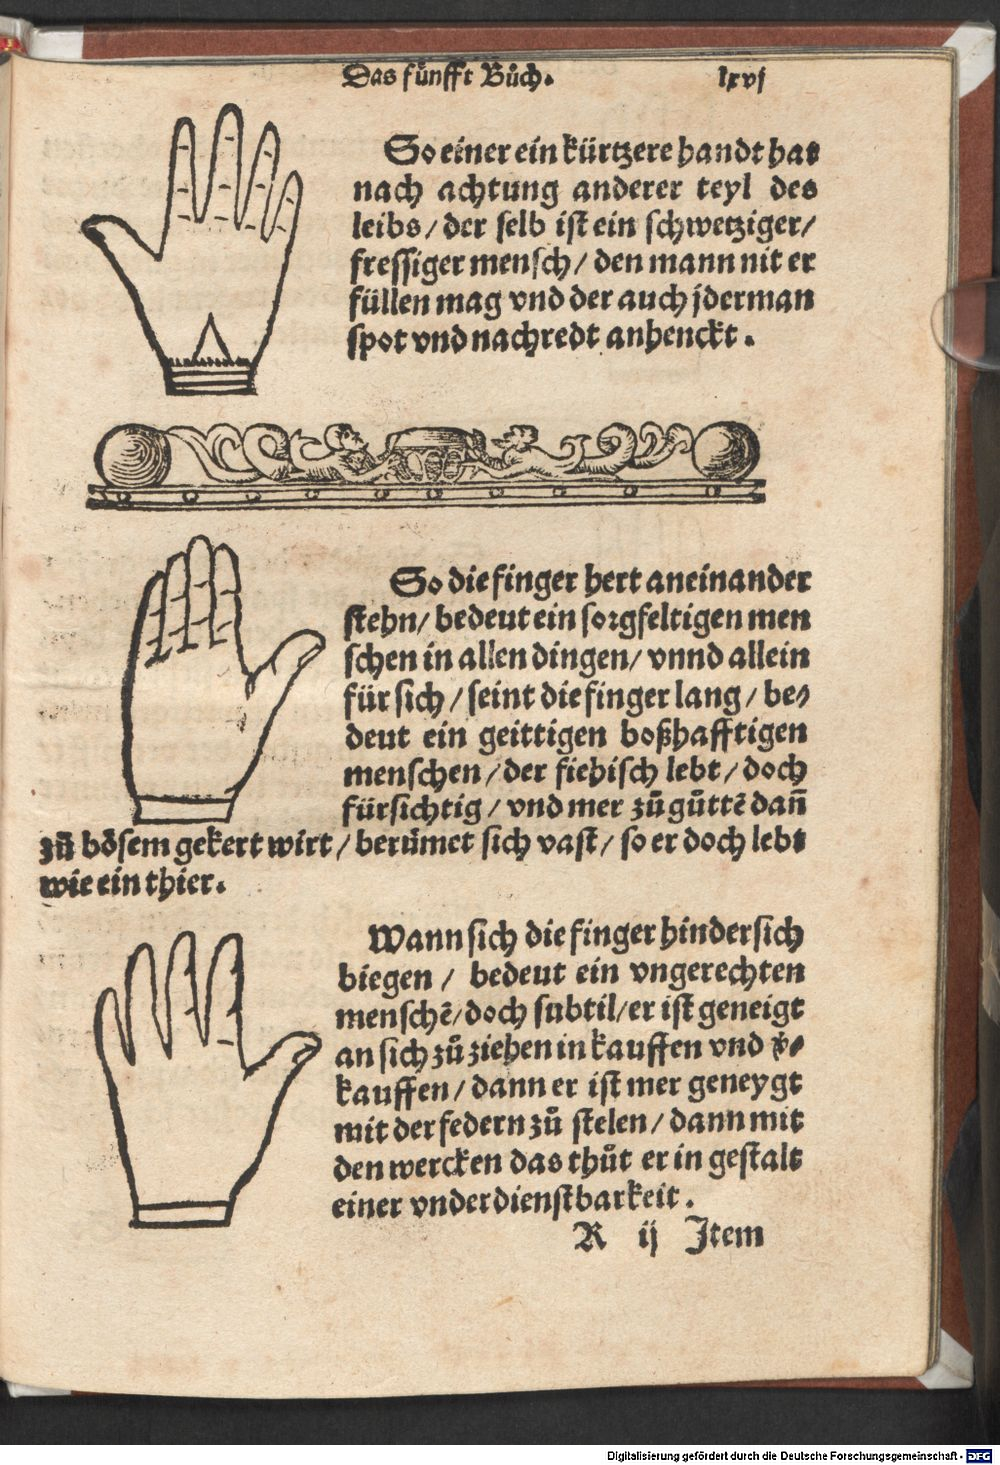 Das fünfft Bůch.
lxvj
So einer ein kürtzere handt hat
nach achtung anderer teyl des
leibs / der selb ist ein schwetziger /
fressiger mensch / den mann nit er
füllen mag vnd der auch jderman
spot vnd nachredt anhenckt.
So die finger hert aneinander
stehn / bedeut ein sorgfeltigen men
schen in allen dingen / vnnd allein
für sich / seint die finger lang / be⸗
deut ein geittigen boßhafftigen
menschen / der fiehisch lebt / doch
fürsichtig / vnd mer zů gůttē dañ
zů bösem gekert wirt / berümet sich vast / so er doch lebt
wie ein thier.
Wann sich die finger hindersich
biegen / bedeut ein vngerechten
menschē / doch subtil / er ist geneigt
an sich zů ziehen in kauffen vnd v̄⸗
kauffen / dann er ist mer geneygt
mit der federn zů stelen / dann mit
den wercken das thůt er in gestalt
einer vnderdienstbarkeit.
R ij Item
Digitalisierung gefördert durch die Deutsche Forschungsgemeinschaft - DFG